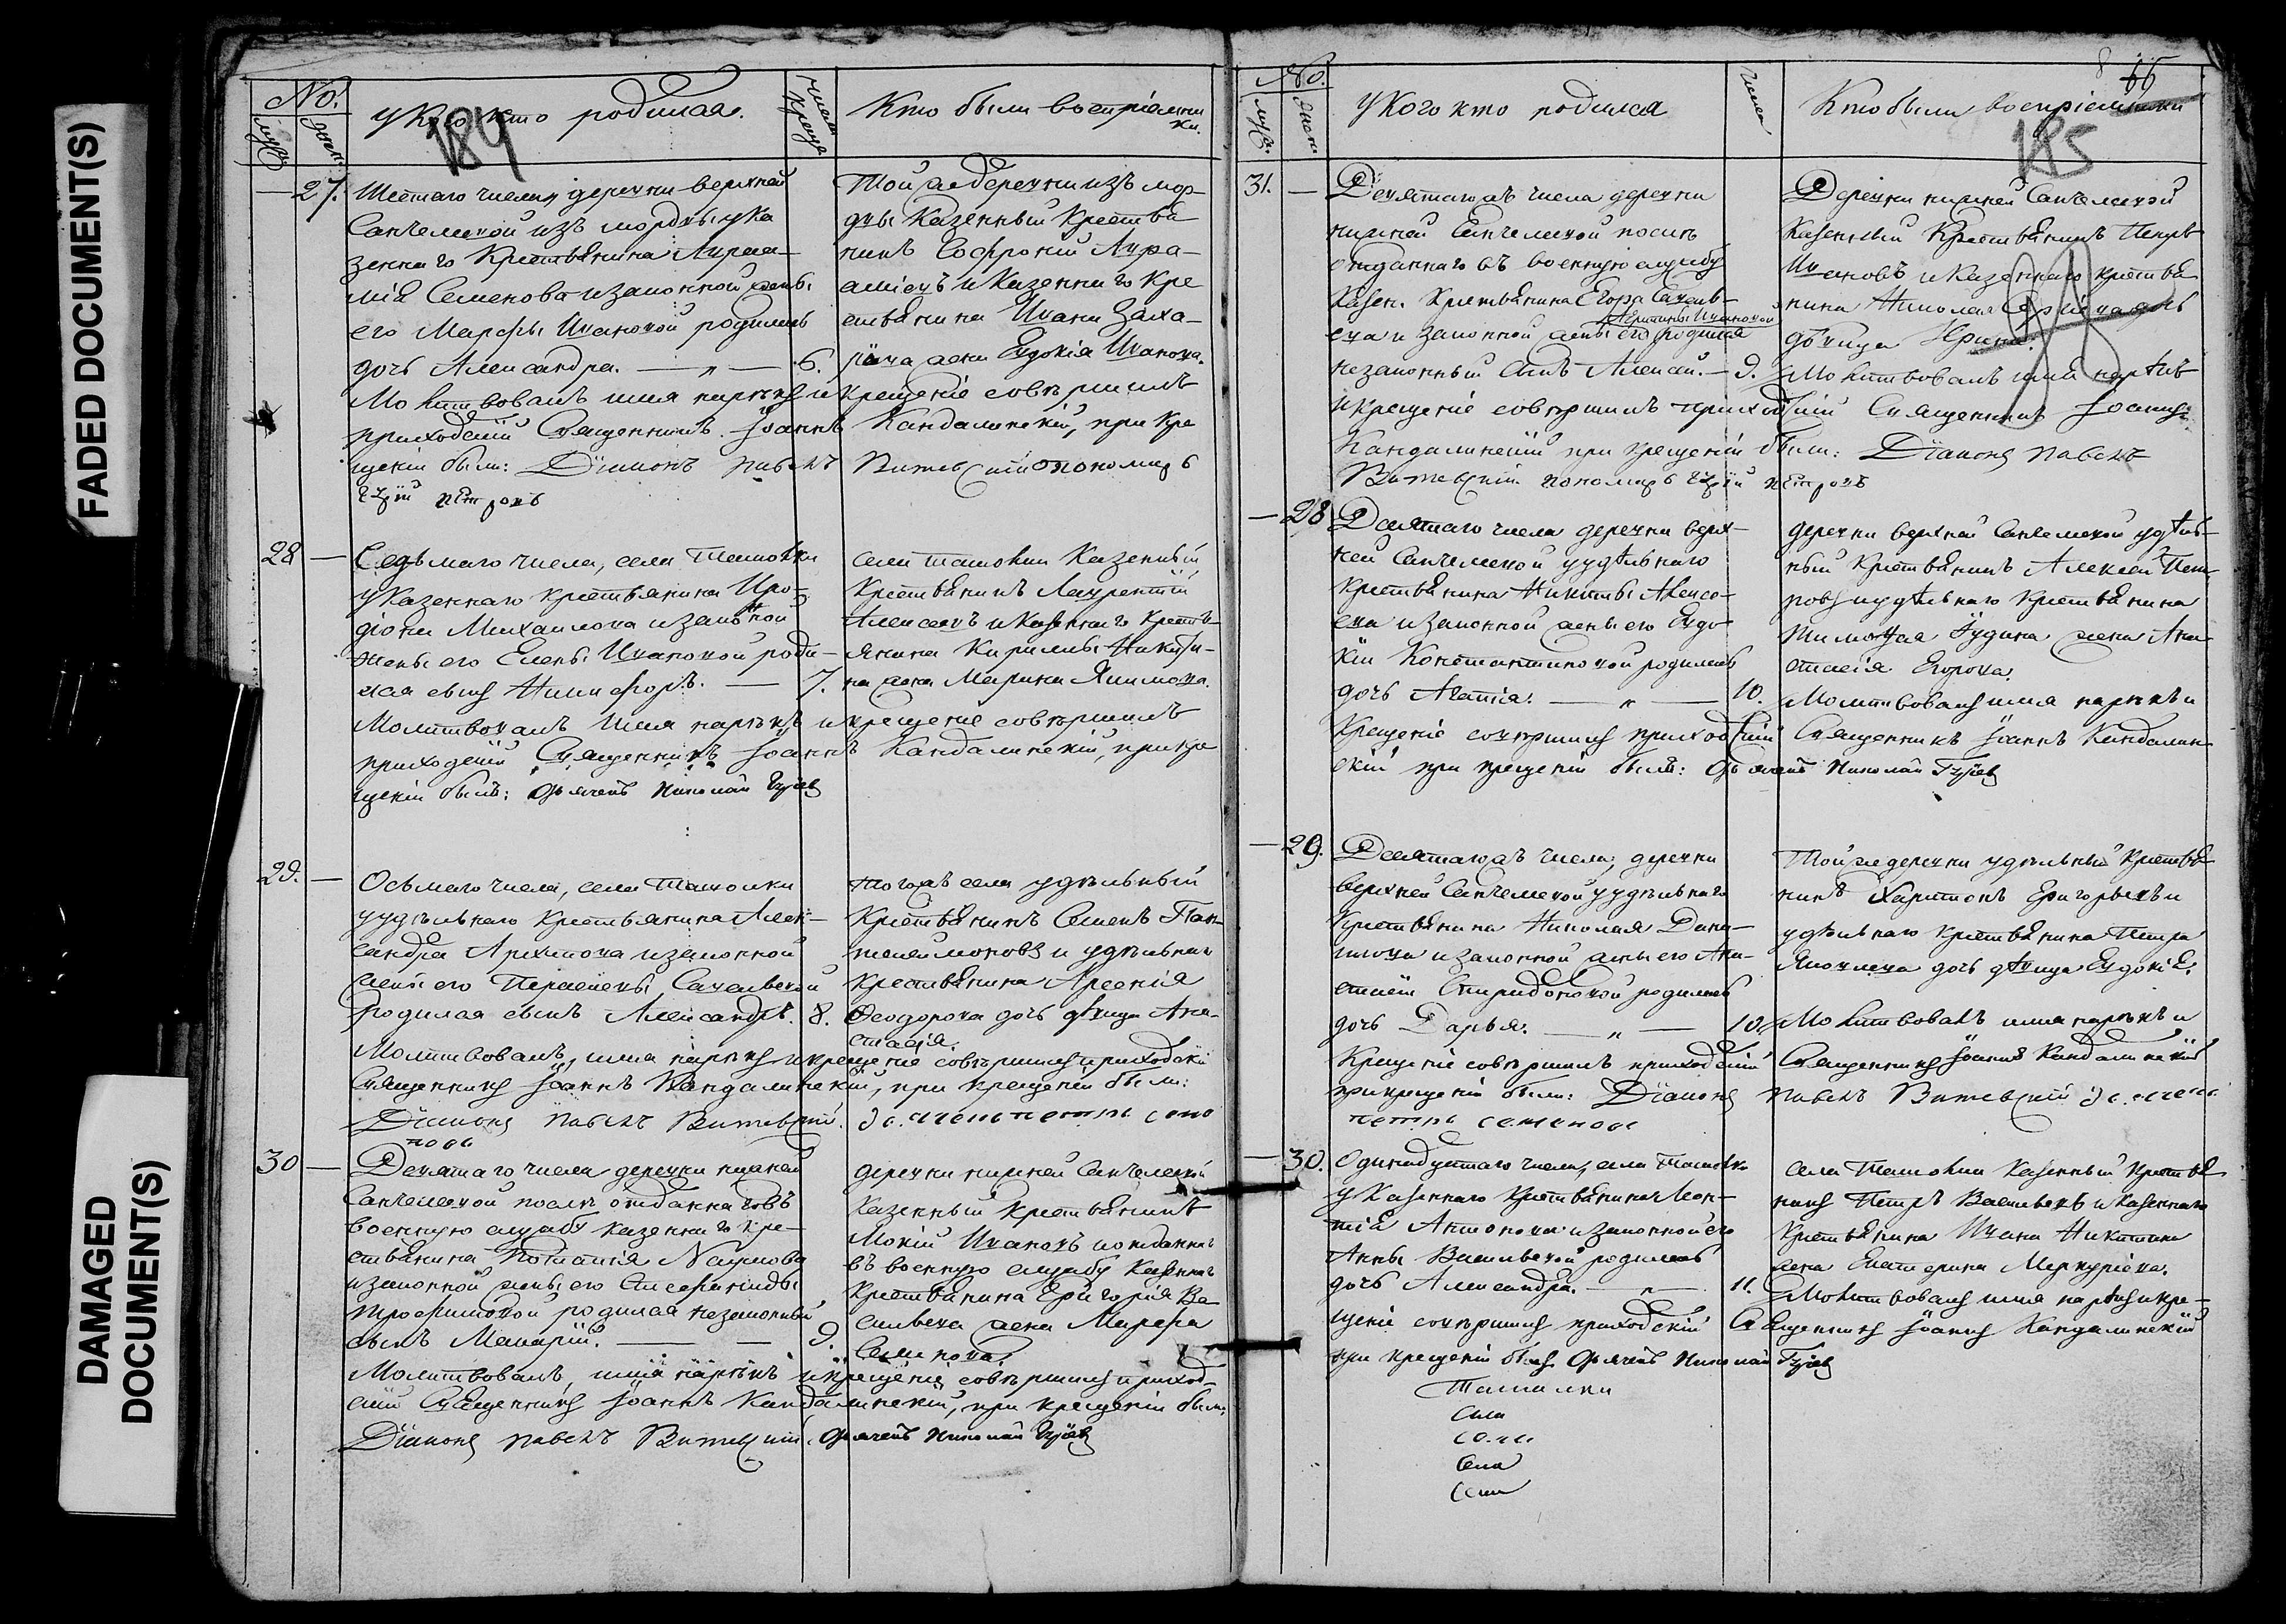 FADED DOCUMENT(S)
DAMAGED
DOCUMENT(S)
No.
муж. жен.
у Кого кто родился.
184
числа крещ.
Кто были воспріемники.
27.
Шестаго числа деревни верхней
Санчелеевой изъ мордвы у ка
зеннаго Крестьянина Авраа-
мія Семенова и законной жены
его Марѳы Ивановой родилась
дочь Александра. — „ — 6.
Той же деревни изъ мор-
двы Казенный Крестья
нинъ Софроній Авра-
аміевъ и Казеннаго Кре
стьянина Ивана Заха-
рова жена Евдокія Иванова.
Молитвовалъ имя нарекъ и крещеніе совершилъ
приходскій Священникъ Іоаннъ Кандалинскій, при кре
щеніи были: Діаконъ Павелъ Витевскій пономарь
Петровъ
28 —
Седьмаго числа, села Ташовки
у Казеннаго крестьянина Иро-
діона Михайлова и законной
жены его Елены Ивановой роди-
лся сынъ Никифоръ. — 7.
села Ташовки Казенный
Крестьянинъ Лаврентій
Алексеевъ и Казеннаго Кресть-
янина Кирилы Никити-
на жена Марина Якимова.
Молитвовалъ имя нарекъ и крещеніе совершилъ
приходскій Священникъ Іоаннъ Кандалинскій, при кре
щеніи былъ: Дьячекъ Николай Гусев
29. —
Осьмаго числа, села Ташолки
у удѣльнаго крестьянина Алек-
сандра Архипова и законной
жены его Савельевой
родился сынъ Александръ. 8.
тогожъ села удѣльный
Крестьянинъ Семенъ Пан-
телеймоновъ и удѣльнаго
крестьянина Арсенія
Ѳеодорова дочь дѣвица Ана-
стасія.
Молитвовалъ, имя нарекъ и крещеніе совершилъ приходскій
Священникъ Іоаннъ Кандалинскій, при крещеніи были:
Діаконъ Павелъ Витевскій. дьячекъ петръ семе
новъ
30 —
Девятаго числа деревни нижней
Санчелеевой послѣ отданнаго въ
военную службу казеннаго кре-
стьянина Наумова
и законной жены его Степаниды
Трофимовой родился незаконный
сынъ Макарій. — — 9.
деревни нижней Санчелеевой
казенный крестьянинъ
Мокій Ивановъ и отданнаго
въ военную службу Казеннаго
крестьянина Григорія Ва-
сильева жена Марѳа
Семенова.
Молитвовалъ, имя нарекъ и крещеніе совершилъ приход-
скій Священникъ Іоаннъ Кандалинскій, при крещеніи были:
Діаконъ Павелъ Витевскій, Дьячекъ Николай Гусев
No.
муж. жен.
у Кого кто родился
числа
Кто были воспріемники
185
31. —
Девятагожъ числа деревни
нижней Санчелеевой послѣ
отданнаго въ военную службу
Казен. Крестьянина Егора Савель-
Ивановой
ева и законной жены его родился
незаконный сынъ Алексѣй. — 9.
Деревни нижней Санчелеевой
Казенный Крестьянинъ Петръ
Ивановъ и Казеннаго крестья
нина Николая дочь
дѣвица Ирина.
Молитвовалъ имя нарекъ
и крещеніе совершилъ приходскій Священникъ Іоаннъ
Кандалинскій при крещеніи были: Діаконъ Павелъ
Витевскій пономарь Петровъ
— 28
Десятаго числа деревни верх-
ней Санчелеевой у удѣльнаго
крестьянина Никиты Алексе-
ева и законной жены его Евдо-
кіи Константиновой родилась
дочь Агапія. — „ — 10.
деревни верхней Санчелеевой удѣль-
ный Крестьянинъ Алексей Пет-
ровъ и удѣльнаго крестьянина
Тимоѳея Іудина жена Ана-
стасія Егорова.
Молитвовалъ имя нарекъ и
Крещеніе совершилъ приходскій Священникъ Іоаннъ Кандалин
скій при крещеніи былъ: Дьячекъ Николай Гусев
— 29.
Десятагожъ числа, деревни
верхней Санчелеевой у удѣльнаго
Крестьянина Николая Дани-
лова и законной жены его Ана-
стасіи Спиридоновой родилась
дочь Дарья. — „ — 10.
Той же деревни удѣльный крестья
нинъ Харитонъ Григорьевъ и
удѣльнаго крестьянина Петра
Яковлева дочь дѣвица Евдокія.
Молитвовалъ имя нарекъ и
Крещеніе совершилъ приходскій Священникъ Іоаннъ Кандалинскій
при крещеніи были: Діаконъ Павелъ Витевскій дьячекъ
петръ семеновъ
— 30.
Одинадцатаго числа, села Ташовки
у Казеннаго Крестьянина Леон-
тія Антонова и законной его
Анны Васильевой родилась
дочь Александра. — „ — 11.
села Ташовки Казенный крестья
нинъ Петръ Васильевъ и Казеннаго
Крестьянина Ивана Никитина
жена Екатерина Меркуріева.
Молитвовалъ имя нарекъ и кре-
щеніе совершилъ приходскій Священникъ Іоаннъ Кандалинскій
при крещеніи былъ Дьячекъ Николай Гусев
Ташолки
Села
Села